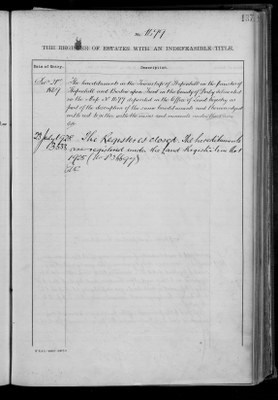 187
No. 1177
THE REGISTER OF ESTATES WITH AN INDEFEASIBLE TITLE.
Date of Entry.
Description.
The hereditaments in the Township of Stapenhill in the parishes of
Stapenhill and Burton upon Trent in the County of Derby delineated
on the Map No. 1177 deposited in the Office of Land Registry as
part of the description of the same hereditaments and thereon edged
with red together with the mines and minerals
23 July 1928
The Register is closed. The hereditaments
are registered under the Land Registration Act
1925 (No. P36697)